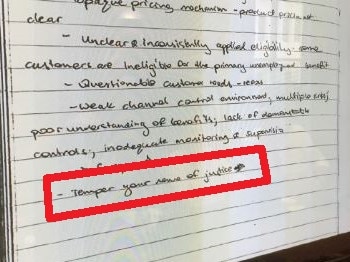 opaque pricing mechanism - product pricing not
clear
- Unclear & inconsistently applied eligibility - some
customers are ineligible for the primary unemployed benefit
- Questionable customer needs -
- weak channel control environment, multiple
poor understanding of benefits, lack of demonstrable
controls, inadequate monitoring & supervision
- Temper your sense of justice